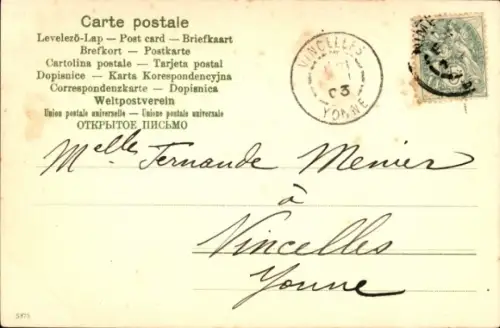 Carte postale
Levelező-Lap — Post card — Briefkaart
Brefkort — Postkarte
Cartolina postale — Tarjeta postal
Dopisnice — Karta Korespondencyjna
Correspondenzkarte — Dopisnica
Weltpostverein
Union postale universelle — Unione postale universale
ОТКРЫТОЕ ПИСЬМО
VINCELLES
03
YONNE
Melle Fernande Menier
à
Vincelles
Yonne